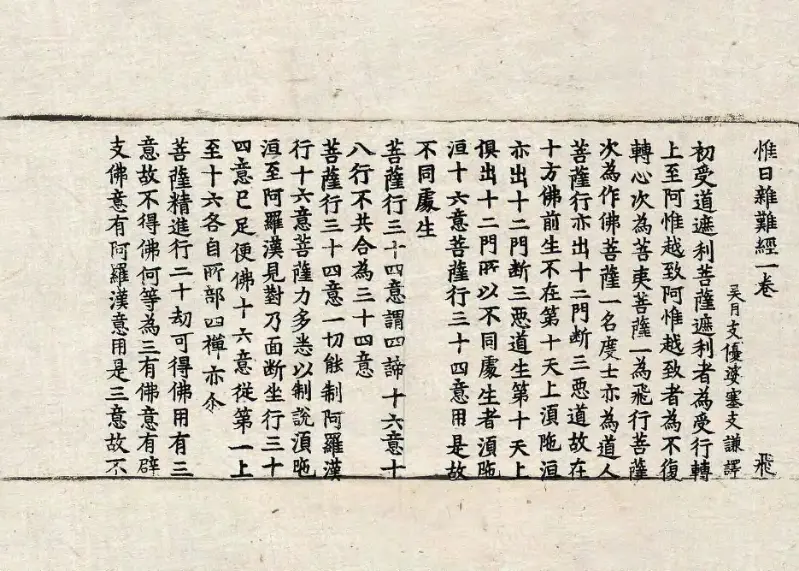 惟日雜難經一卷 飛
吴月支優婆塞支謙譯
初受道遮利菩薩遮利者為受行轉
上至阿惟越致阿惟越致者為不復
轉心次為菩夷菩薩一為飛行菩薩
次為作佛菩薩一名度士亦為道人
菩薩行亦出十二門断三惡道故在
十方佛前生不在第十天上湏陁洹
亦出十二門断三惡道生第十天上
俱出十二門所以不同處生者湏陁
洹十六意菩薩行三十四意用是故
不同處生
菩薩行三十四意謂四諦十六意十
八行不共合為三十四意
菩薩行三十四意一切能制阿羅漢
行十六意菩薩力多悉以制說湏陁
洹至阿羅漢見對乃面断坐行三十
四意已足便佛十六意從第一上
至十六各自所部四禪亦尒
菩薩精進行二十劫可得佛用有三
意故不得佛何等為三有佛意有辟
支佛意有阿羅漢意用是三意故不